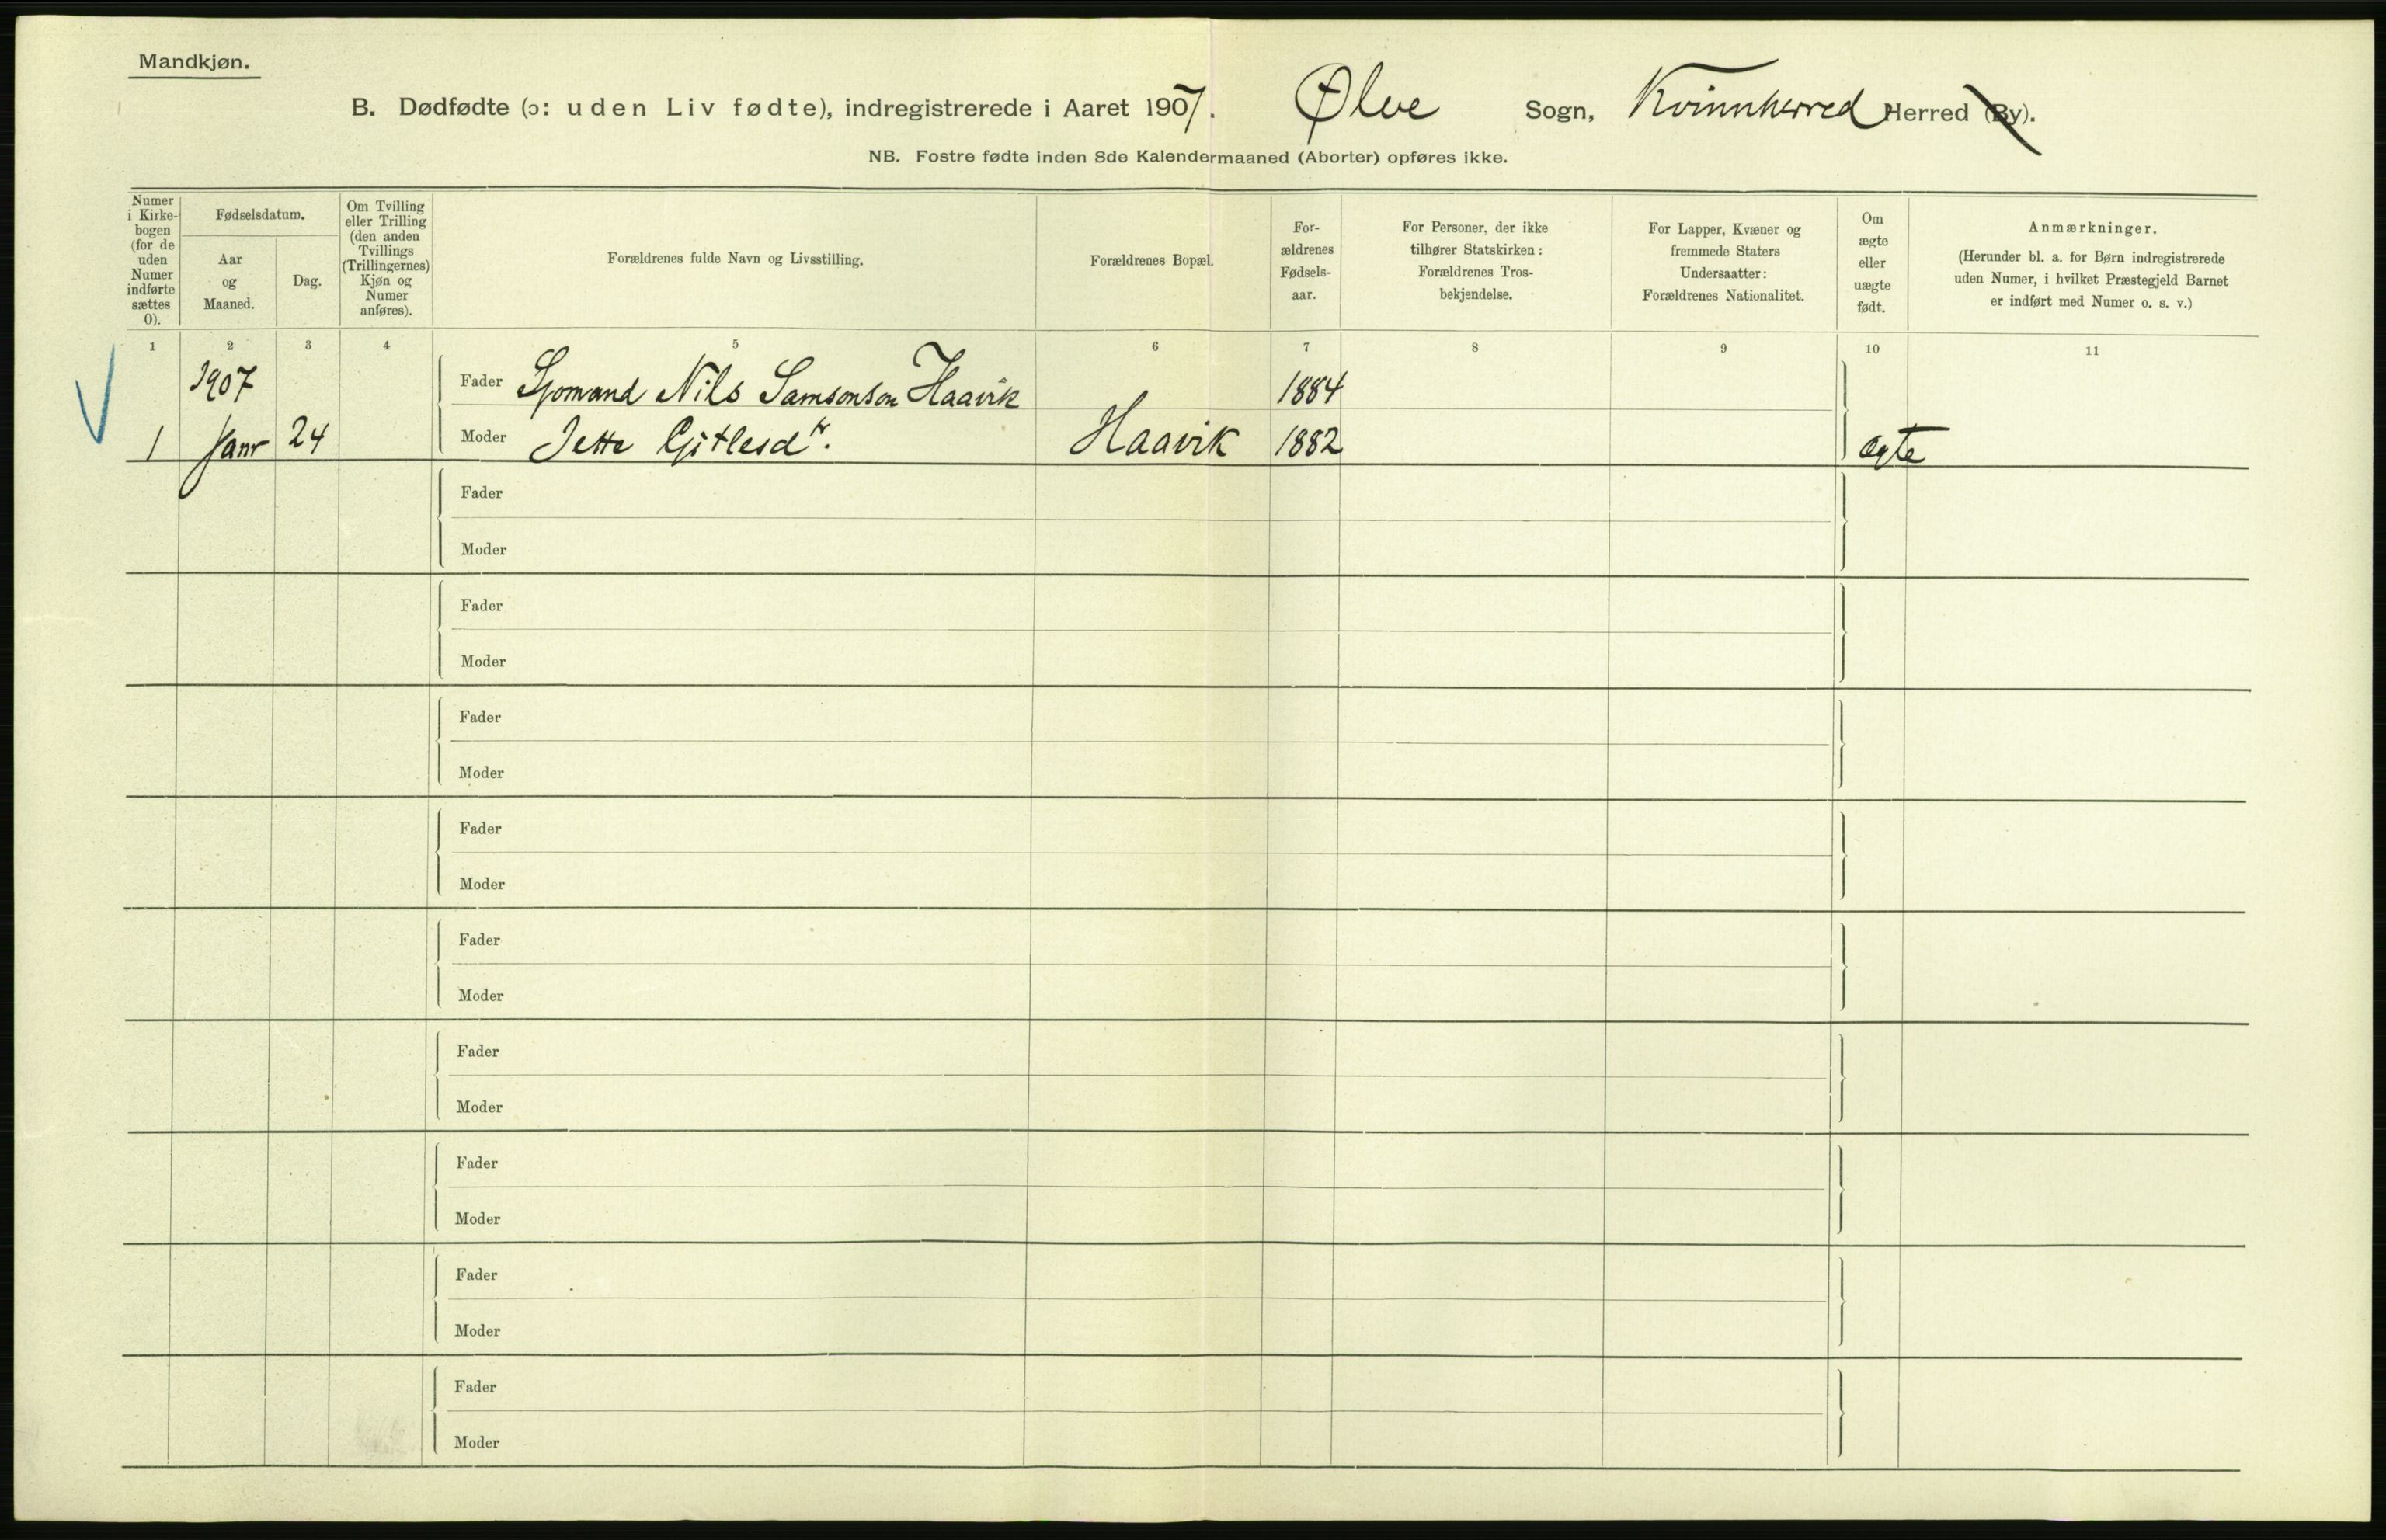 Mandkjøn.
B. Dødfødte (ɔ: uden Liv fødte), indregistrerede i Aaret 1907. Ølve Sogn, Kvinnherred Herred (By).
NB. Fostre fødte inden 8de Kalendermaaned (Aborter) opføres ikke.
Numer
i Kirke-
bogen
(for de
uden
Numer
indførte
sættes
0).
Fødselsdatum.
Aar
og
Maaned.
Dag.
Om Tvilling
eller Trilling
(den anden
Tvillings
(Trillingernes)
Kjøn og
Numer
anføres).
Forældrenes fulde Navn og Livsstilling.
Forældrenes Bopæl.
For-
ældrenes
Fødsels-
aar.
For Personer, der ikke
tilhører Statskirken:
Forældrenes Tros-
bekjendelse.
For Lapper, Kvæner og
fremmede Staters
Undersaatter:
Forældrenes Nationalitet.
Om
ægte
eller
uægte
født.
Anmærkninger.
(Herunder bl. a. for Børn indregistrerede
uden Numer, i hvilket Præstegjeld Barnet
er indført med Numer o. s. v.)
1 2 3 4 5 6 7 8 9 10 11
1907 Fader Sjomand Nils Samsonson Haavik 1884
1 Janr 24 Moder Jette Gitlesdtr. Haavik 1882 ægte
Fader
Moder
Fader
Moder
Fader
Moder
Fader
Moder
Fader
Moder
Fader
Moder
Fader
Moder
Fader
Moder
Fader
Moder